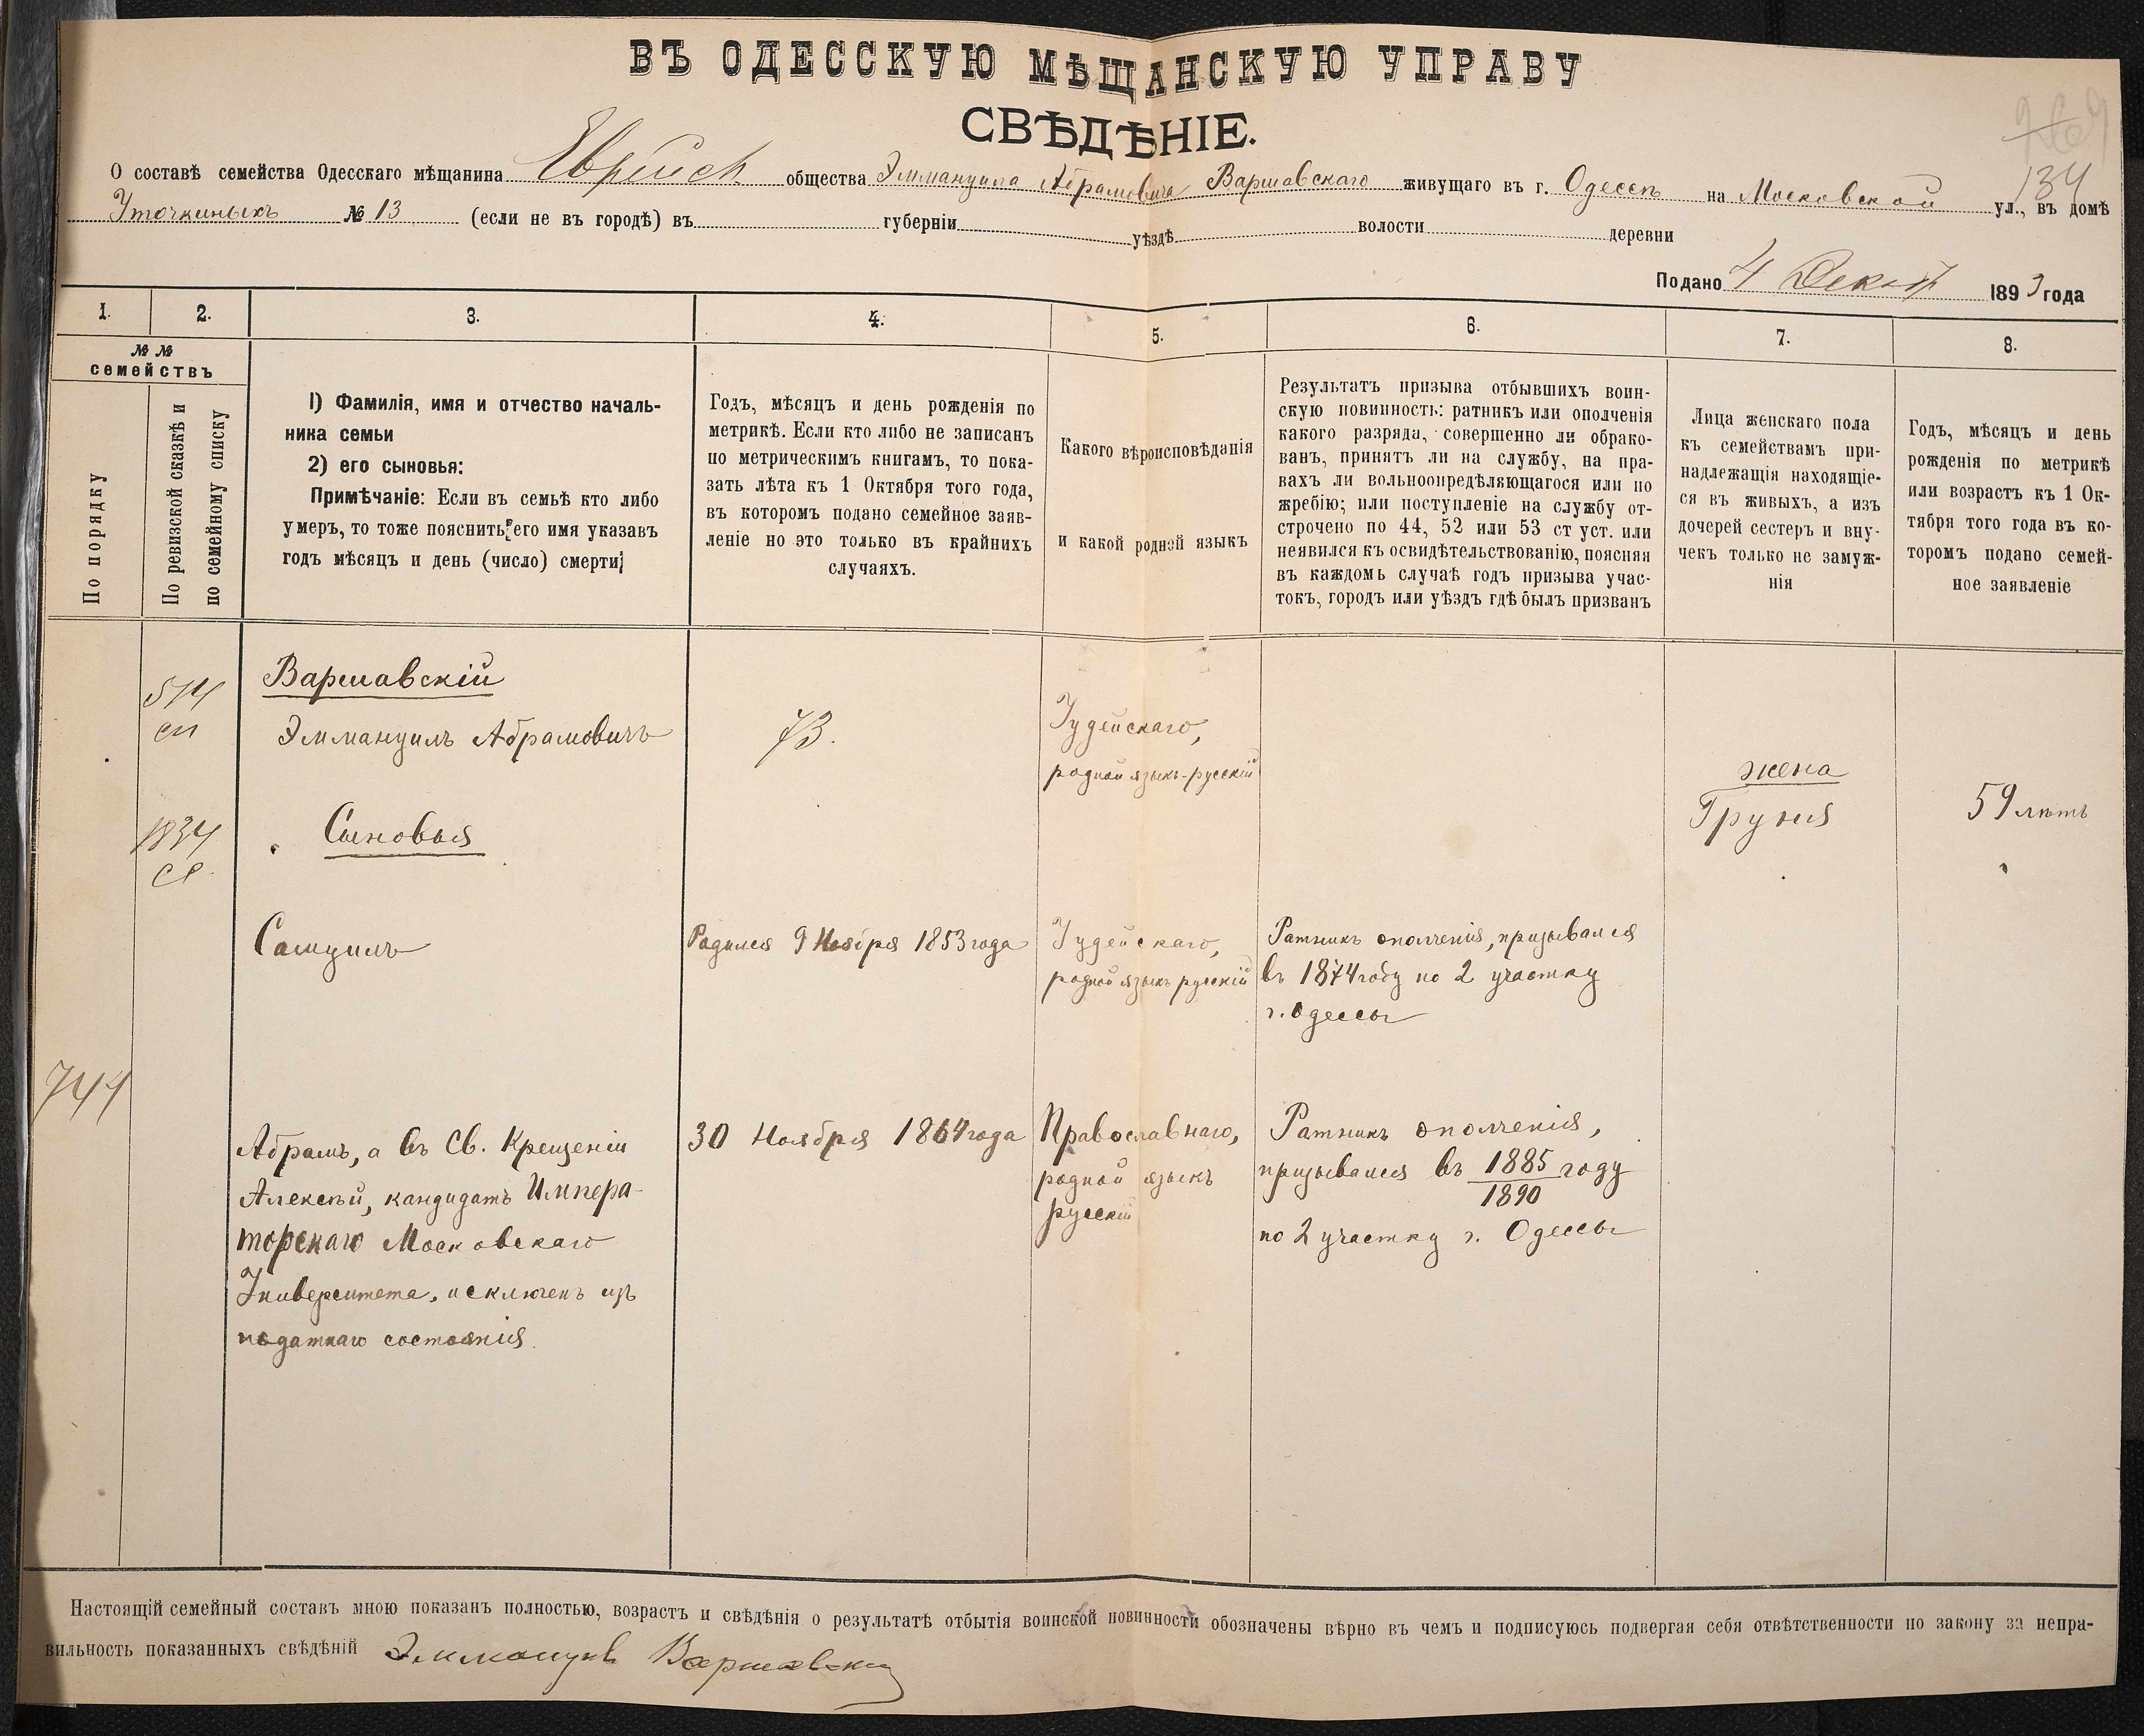 ВЪ ОДЕССКУЮ МѢЩАНСКУЮ УПРАВУ
СВѢДѢНІЕ.
134
О составѣ семейства Одесскаго мѣщанина Еврейск общества Эммануила Абрамовича Варшавскаго живущаго въ г. Одессѣ на Московской ул., въ домѣ
Уточкиныхъ № 13 (если не въ городѣ) въ губерніи уѣздѣ волости деревни
Подано 4 Декабр 1893 года
1. 2. 3. 4. 5. 6. 7. 8.
№ №
семействъ
По порядку
По ревизской сказкѣ и
по семейному списку
1) Фамилія, имя и отчество началь-
ника семьи
2) его сыновья:
Примѣчаніе: Если въ семьѣ кто либо
умеръ, то тоже пояснить его имя указавъ
годъ мѣсяцъ и день (число) смерти;
Годъ, мѣсяцъ и день рожденія по
метрикѣ. Если кто либо не записанъ
по метрическимъ книгамъ, то пока-
зать лѣта къ 1 Октября того года,
въ которомъ подано семейное заяв-
леніе но это только въ крайнихъ
случаяхъ.
Какого вѣроисповѣданія
и какой родной языкъ
Результатъ призыва отбывшихъ воин-
скую повинность: ратникъ или ополченія
какого разряда, совершенно ли обрако-
ванъ, принятъ ли на службу, на пра-
вахъ ли вольноопредѣляющагося или по
жребію; или поступленіе на службу от-
строчено по 44, 52 или 53 ст уст. или
неявился къ освидѣтельствованію, поясняя
въ каждомъ случаѣ годъ призыва учас-
токъ, городъ или уѣздъ гдѣ былъ призванъ
Лица женскаго пола
къ семействамъ при-
надлежащія находящіе-
ся въ живыхъ, а изъ
дочерей сестеръ и вну-
чекъ только не замуж-
нія
Годъ, мѣсяцъ и день
рожденія по метрикѣ
или возрастъ къ 1 Ок-
тября того года въ ко-
торомъ подано семей-
ное заявленіе
514
сп
1834
ср
Варшавскій
Эммануилъ Абрамовичъ
73.
Іудейскаго,
родной языкъ-русскій
жена
Груня
59 лѣтъ
Сыновья
Самуилъ
Родился 9 Ноября 1853 года
Іудейскаго,
родной языкъ русскій
Ратникъ ополченія, призывался
въ 1874 году по 2 участку
г. Одессы
744
Абрамъ, а въ Св. Крещеніи
Алексѣй, кандидатъ Импера-
торскаго Московскаго
Университета, исключенъ изъ
податнаго состоянія.
30 Ноября 1864 года
Православнаго,
родной языкъ
русскій
Ратникъ ополченія,
призывался въ 1885 году
1890
по 2 участку г. Одессы
Настоящій семейный составъ мною показанъ полностью, возрастъ и свѣдѣнія о результатѣ отбытія воинской повинности обозначены вѣрно въ чемъ и подписуюсь подвергая себя отвѣтственности по закону за непра-
вильность показанныхъ свѣдѣній Эммануил Варшавскій